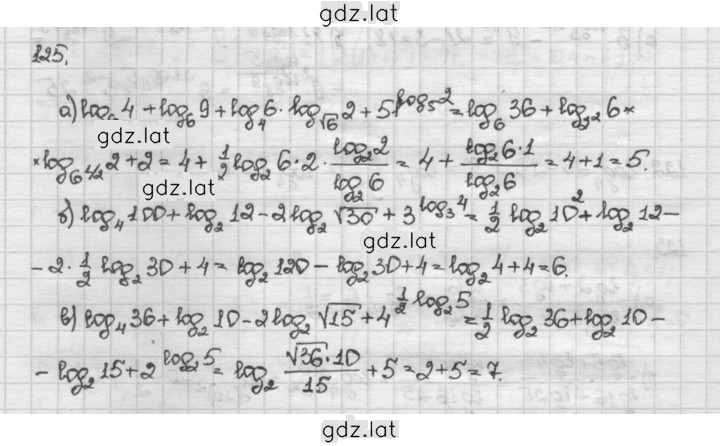 gdz.lat
125.
а) log₆4 + log₆9 + log₄6 · log_√6 2 + 5^(log₅2) = log₆36 + log_2² 6 ×
gdz.lat
× log_6^(1/2) 2 + 2 = 4 + 1/2 log₂6 · 2 · log₂2 / log₂6 = 4 + log₂6·1 / log₂6 = 4 + 1 = 5.
gdz.lat
б) log₄100 + log₂12 − 2log₂√30 + 3^(log₃4) = 1/2 log₂10² + log₂12 −
gdz.lat
− 2 · 1/2 log₂30 + 4 = log₂120 − log₂30 + 4 = log₂4 + 4 = 6.
в) log₄36 + log₂10 − 2log₂√15 + 4^(1/2 log₂5) = 1/2 log₂36 + log₂10 −
− log₂15 + 2^(log₂5) = log₂ √36·10 / 15 + 5 = 2 + 5 = 7.
gdz.lat
gdz.lat